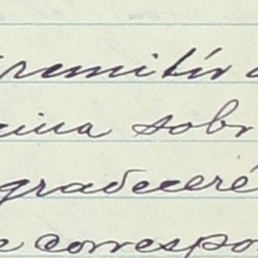 remitir a
ina sobr
gradeceré
e correspo